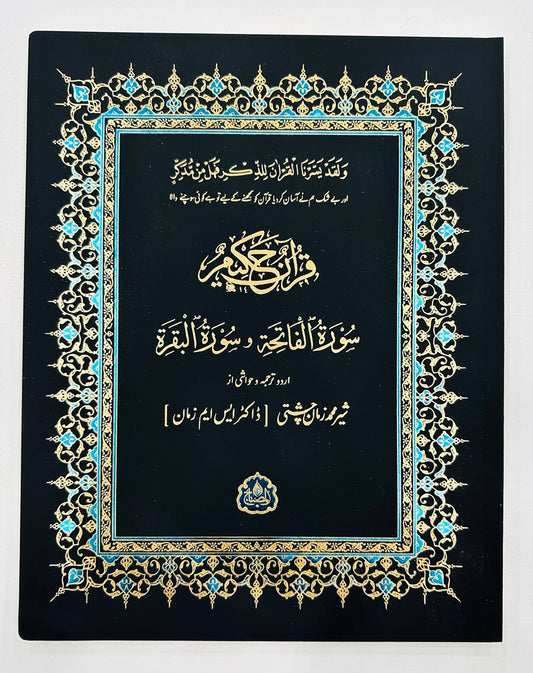 وَلَقَدْ يَسَّرْنَا الْقُرْاٰنَ لِلذِّكْرِ فَهَلْ مِنْ مُّدَّكِرٍ
اور بے شک ہم نے آسان کر دیا قرآن کو سمجھنے کے لیے تو ہے کوئی سوچنے والا
قرآن حکیم
سُوْرَۃُ الْفَاتِحَۃِ و سُوْرَۃُ الْبَقَرَۃِ
اردو ترجمہ و حواشی از
شیر محمد زمان چشتی [ڈاکٹر ایس ایم زمان]
المصباح